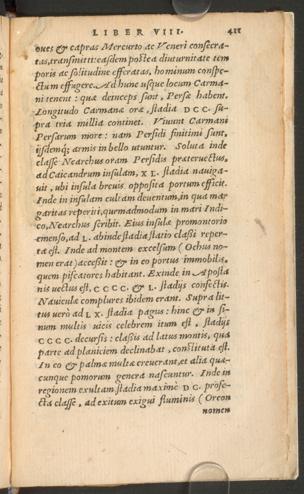 LIBER VIII. 411
oues & capras Mercurio ac Veneri consecra-
tas, transmitti: easdem postea diuturnitate tem
poris ac solitudine efferatas, hominum conspe-
ctum effugere. Ad hunc usque locum Carma
ni tenent: quæ deinceps sunt, Persæ habent.
Longitudo Carmanæ oræ, stadia DCC. su-
pra tria millia continet. Viuunt Carmani
Persarum more: nam Persidi finitimi sunt,
ijsdemq; armis in bello utuntur. Soluta inde
classe Nearchus oram Persidis præteruectus,
ad Caicandrum insulam, XL. stadia nauiga-
uit, ubi insula breuis opposita portum efficit.
Inde in insulam cultam deuentum, in qua mar
garitas reperiri, quemadmodum in mari Indi-
co, Nearchus scribit. Eius insulæ promontorio
emenso, ad L. abinde stadia statio classi reper-
ta est. Inde ad montem excelsum (Ochus no-
men erat) accessit: & in eo portus immobilis,
quem piscatores habitant. Exinde in Aposta
nis uectus est, CCCC. & L. stadijs confectis.
Nauiculæ complures ibidem erant. Supra lit-
tus uerò ad LX. stadia pagus: hinc & in si-
num multis uicis celebrem itum est, stadijs
CCCC. decursis: classis ad latus montis, qua
parte ad planiciem declinabat, constituta est.
In eo & palmæ multæ creuerant, et alia quæ-
cunque pomorum genera nascuntur. Inde in
regionem exultam stadia maximè DC. profe-
cta classe, ad exitum exigui fluminis (Oreon
nomen